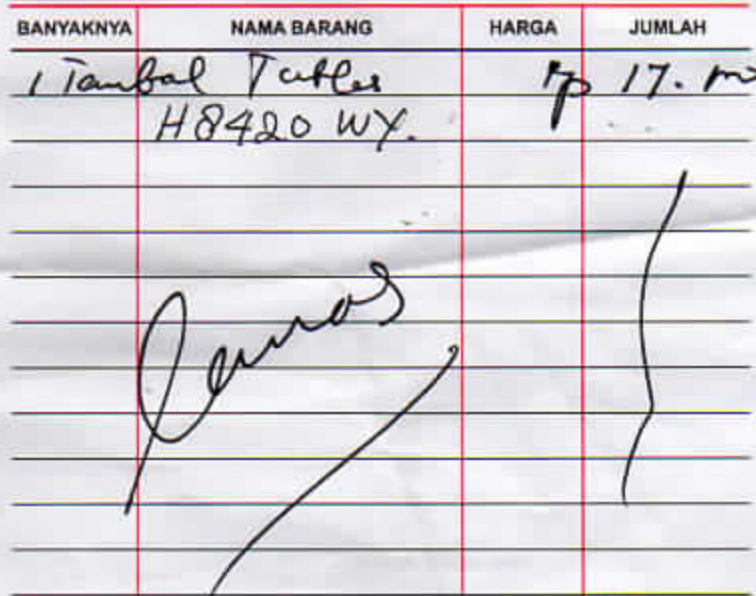 BANYAKNYA NAMA BARANG HARGA JUMLAH
1 Tambal Tubles Rp 17.
H8420 WY.
Lunas